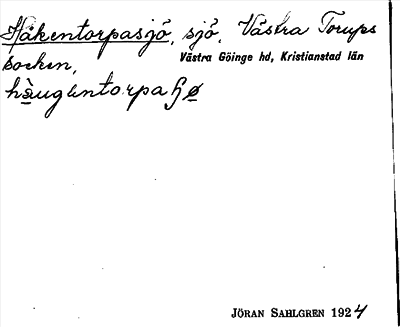 Håkentorpasjö, sjö, Västra Torups
socken, Västra Göinge hd, Kristianstad län
JÖRAN SAHLGREN 1924